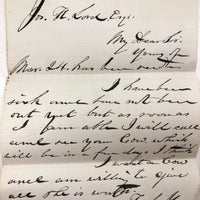 Jon. H. Lord Esq.
My Dear Sir.
Yours of
Mar. 24. has been rec'd
I have been
sick and have not been
out yet but as soon as
I am able I will call
and see your Cow. which
will be in a few days I think
I want a Cow
and am willing to give
all she is worth.